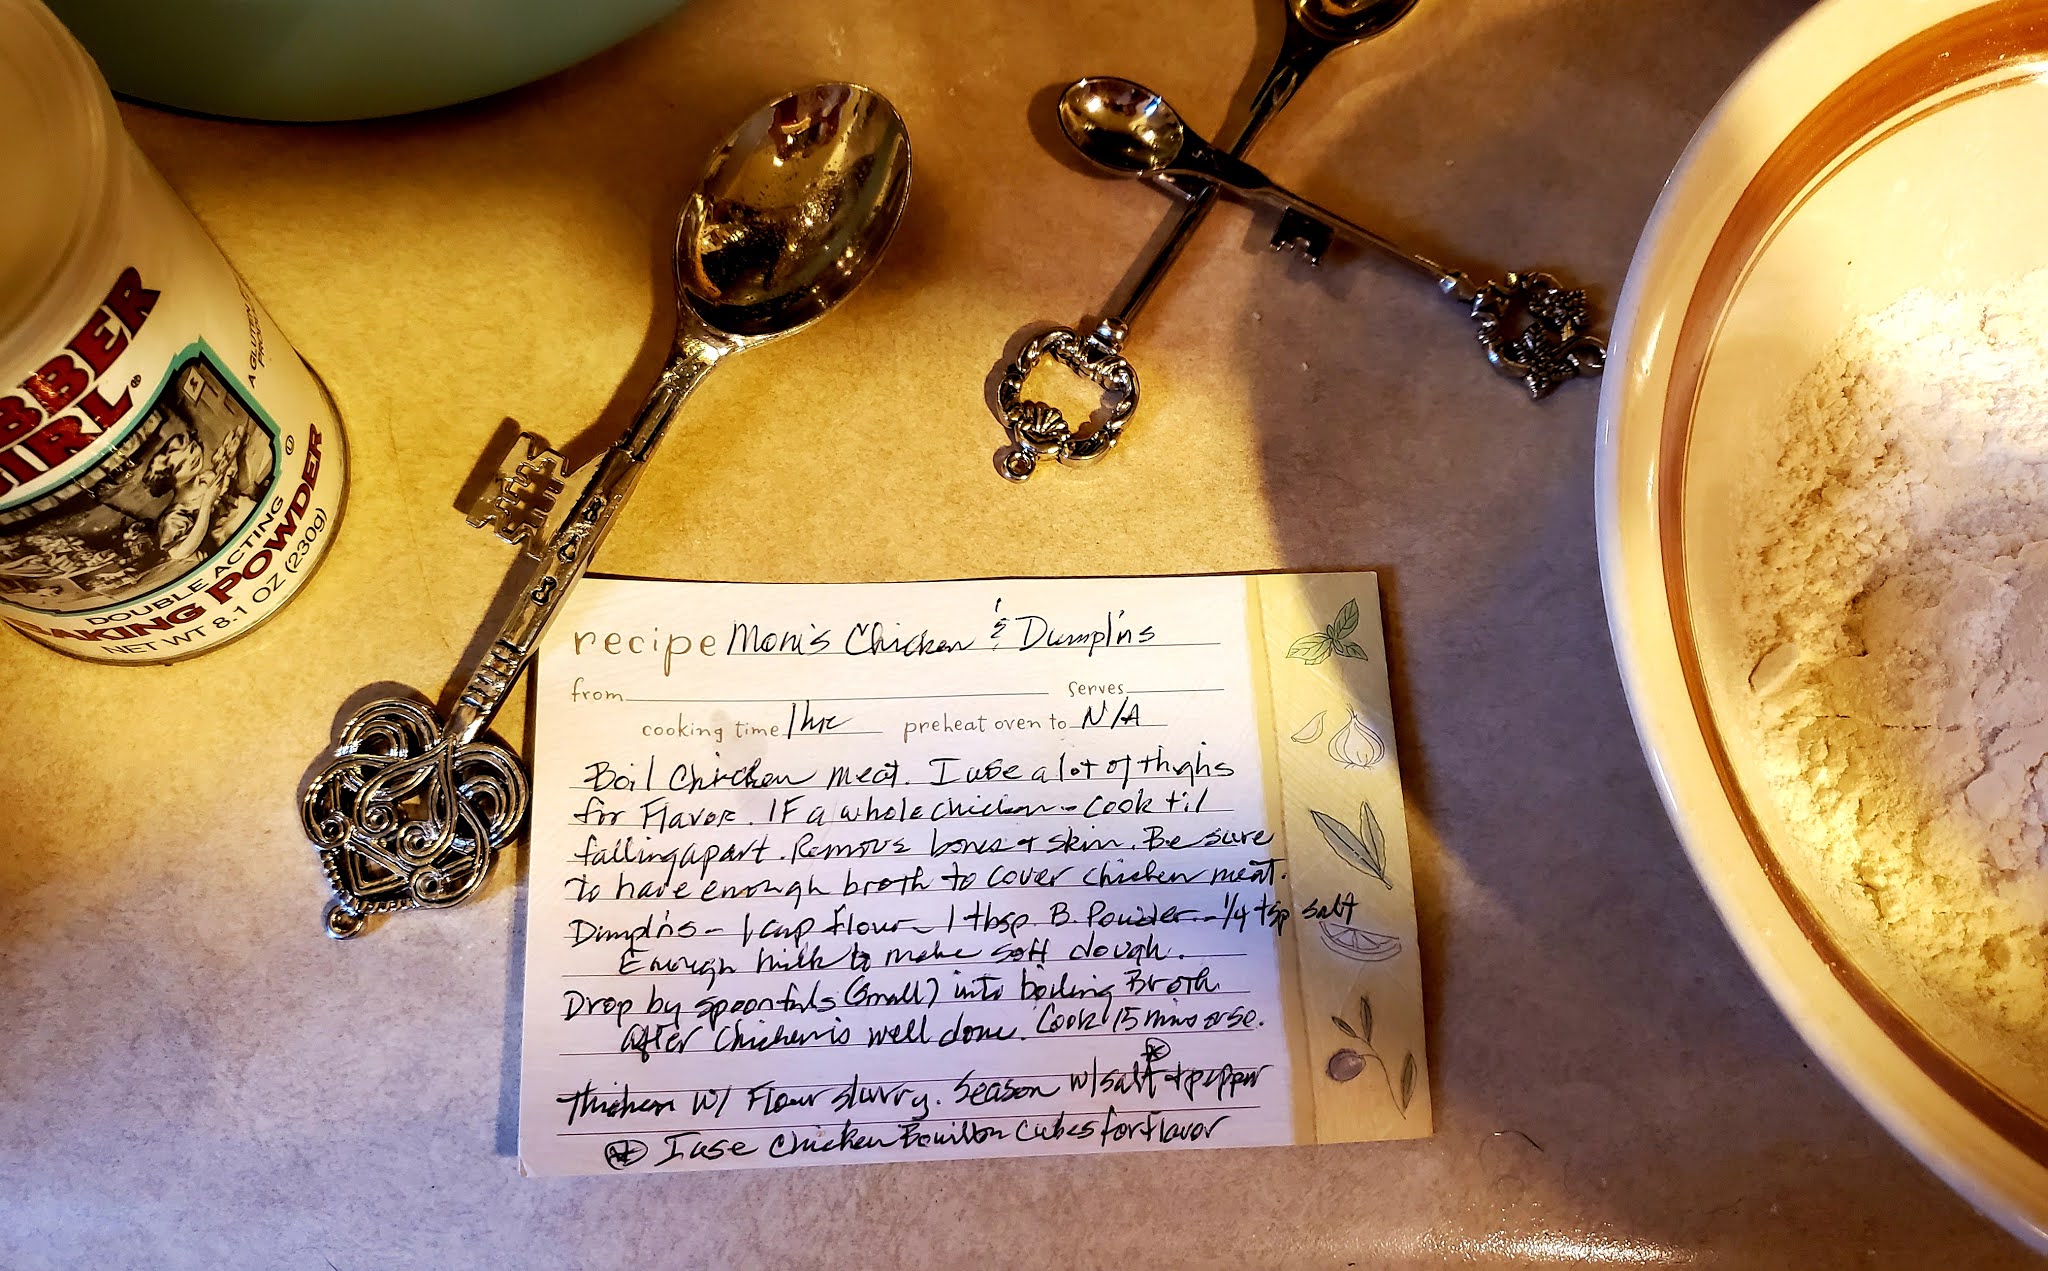 BBER
GIRL®
A GLUTEN
DOUBLE ACTING
BAKING POWDER
NET WT 8.1 OZ (230g)
recipe Mom's Chicken & Dumplin's
from
serves
cooking time 1 hr
preheat oven to N/A
Boil Chicken meat. I use a lot of thighs
for Flavor. IF a whole chicken - Cook til
falling apart. Remove bones + skin. Be sure
to have enough broth to cover chicken meat.
Dumplin's - 1 cup flour - 1 tbsp. B. Powder - 1/4 tsp salt
Enough milk to make soft dough.
Drop by spoonfuls (small) into boiling Broth
after Chicken is well done. Cook 15 mins or so.
Thicken w/ Flour slurry. Season w/ salt * + pepper
* I use Chicken Bouillon Cubes for Flavor